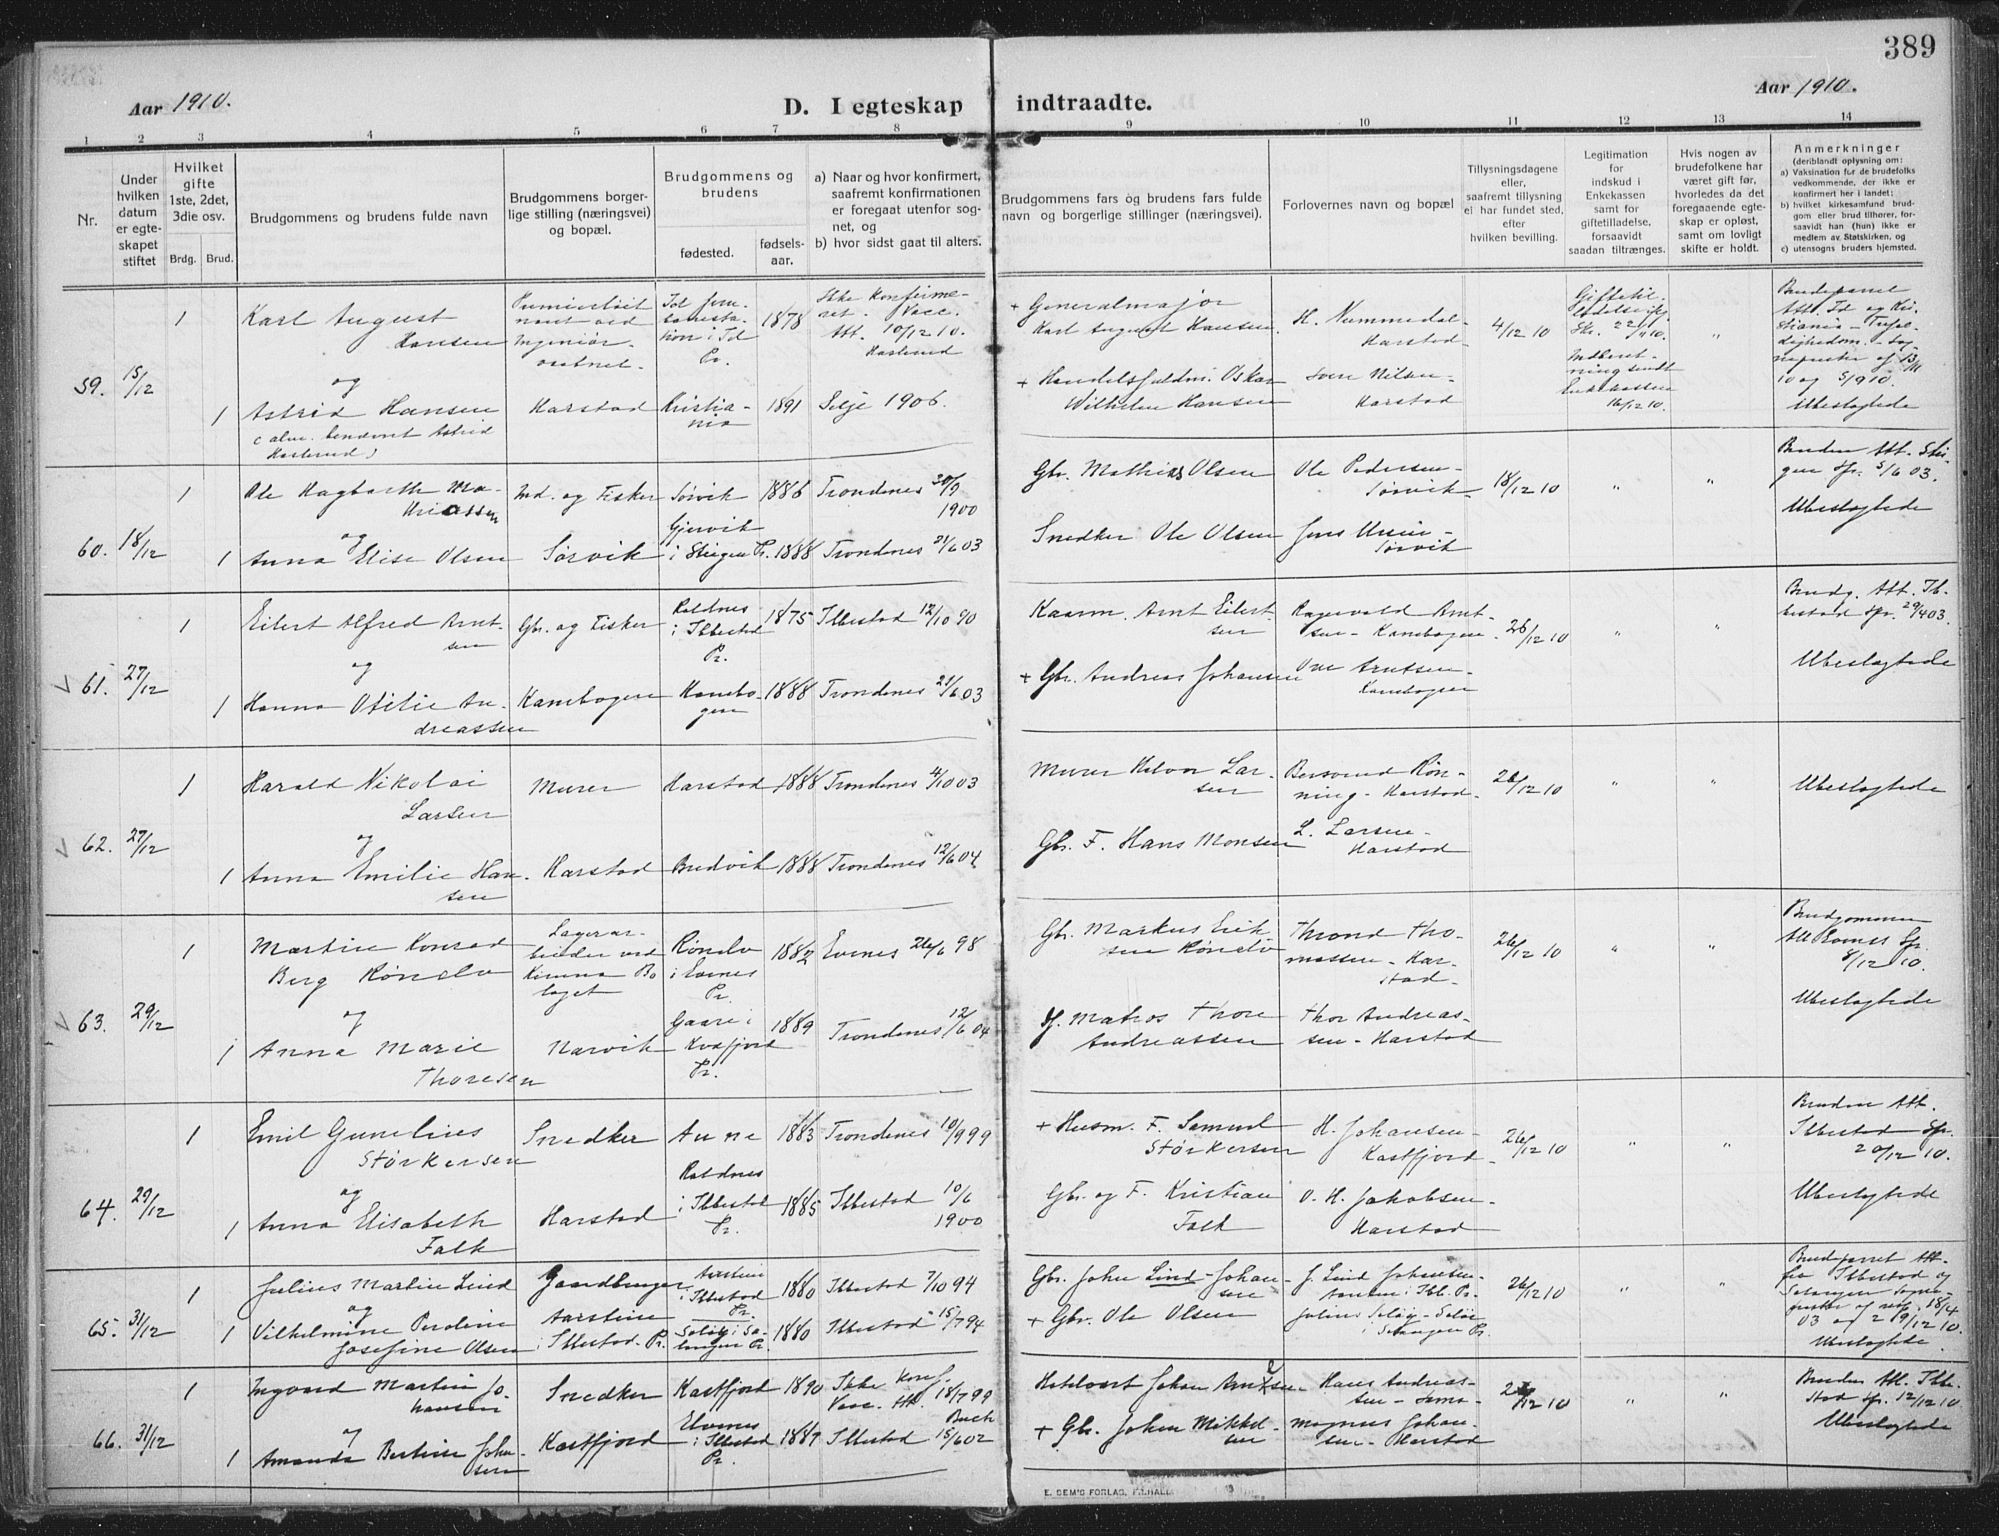 389
Aar 1910.
D. I egteskap indtraadte.
Aar 1910.
1 2 3 4 5 6 7 8 9 10 11 12 13 14
Nr.
Under hvilken datum er egteskapet stiftet
Hvilket gifte 1ste, 2det, 3die osv.
Brdg. Brud.
Brudgommens og brudens fulde navn
Brudgommens borgerlige stilling (næringsvei) og bopæl.
Brudgommens og brudens
fødested.
fødselsaar.
a) Naar og hvor konfirmert, saafremt konfirmationen er foregaat utenfor sognet, og
b) hvor sidst gaat til alters.
Brudgommens fars og brudens fars fulde navn og borgerlige stillinger (næringsvei).
Forlovernes navn og bopæl
Tillysningsdagene eller, saafremt tillysning ei har fundet sted, efter hvilken bevilling.
Legitimation for indskud i Enkekassen samt for giftetilladelse, forsaavidt saadan tiltrænges.
Hvis nogen av brudefolkene har været gift før, hvorledes da det foregaaende egteskap er opløst, samt om lovligt skifte er holdt.
Anmerkninger
(deriblandt oplysning om:
a) Vaksination for de brudefolks vedkommende, der ikke er konfirmert her i landet;
b) hvilket kirkesamfund brudgom eller brud tilhører, forsaavidt han (hun) ikke er medlem av Statskirken, og
c) utensogns bruders hjemsted.
59. 15/12
1 Karl August Hansen
1878
Ikke konfirmeret. Vacc. Att. 10/12 10.
+ Generalmajor Karl August Hansen
H. Nummedal - Harstad
4/12 10
"
og
1 Astrid Hansen
Harstad
Kristiania
1891
Selje 1906.
Oskar Wilhelm Hansen
Nilsen - Harstad
16/12 10.
Ubeslagtede
60. 18/12
1 Ole Hagbarth Mathiassen
Ind. og Fisker
Sørvik
1886
Trondenes 30/9 1900
Gbr. Mathias Olsen
Ole Pedersen - Sørvik
18/12 10
" "
Bruden Att. Steigen Spr. 5/6 03.
Ubeslagtede
og
1 Anna Elise Olsen
Sørvik
i Steigen Pr.
1888
Trondenes 21/6 03
Snedker Ole Olsen
Sørvik
61. 27/12
1 Eilert Alfred Arntsen
Gbr. og Fisker
Roldnes i Ibbestad Pr.
1875
Ibbestad 12/10 90
Kaarm. Arnt Eilertsen
Ragnvald Arntsen - Kanebogen
26/12 10
" "
Brudg. Att. Ibbestad Spr. 29/4 03.
Ubeslagtede
og
1 Hanna Otilie Andreassen
Kanebogen
Kanebogen
1888
Trondenes 21/6 03
+ Gbr. Andreas Johansen
Ove Arntsen - Kanebogen
62. 27/12
1 Harald Nikolai Larsen
Murer
Harstad
1888
Trondenes 4/10 03
Murer Halvor Larsen
Rønning - Harstad
26/12 10
" "
Ubeslagtede
og
1 Anna Emilie Hansen
Harstad
Bredvik
1888
Trondenes 12/6 04
Gbr. F. Hans Monsen
L. Larsen - Harstad
63. 29/12
1 Martin Konrad Berg Rønelv
Lagerarbeider ved Kiruna Bolaget
Rønelv i Evenes Pr.
1882
Evenes 26/6 98
Gbr. Markus Eriksen Rønelv
Thrond Thomassen - Harstad
26/12 10
" "
Brudgommen Att. Evenes Spr. 8/12 10.
Ubeslagtede
og
1 Anna Marie Thoresen
Narvik
Gaare i Kvæfjord Pr.
1889
Trondenes 12/6 04
Matros Thore Andreassen
Thor Andreassen - Harstad
64. 29/12
1 Emil Gunelius Størkersen
Snedker
Aune
1883
Trondenes 10/9 99
+ Husm. F. Samuel Størkersen
H. Johansen - Kastfjord
26/12 10
" "
Bruden Att. Ibbestad Spr. 20/12 10.
Ubeslagtede
og
1 Anna Elisabeth Falk
Harstad
Roldnes i Ibbestad Pr.
1885
Ibbestad 10/6 1900
Gbr. og F. Kristian Falk
O. H. Jakobsen - Harstad
65. 31/12
1 Julius Martin Lind
Gaardbruger
Aarstein i Ibbestad Pr.
1880
Ibbestad 7/10 94
Gbr. Johan Lind-Johansen
J. Lind Johansen
26/12 10
" "
og
1 Vilhelmine Peroline Josefine Olsen
Aarstein i Ibbestad Pr.
Seløy i Salangen Pr.
1880
Ibbestad 15/7 94
+ Gbr. Ole Olsen
Julius Seløy - Seløy i Salangen Pr.
Ubeslagtede
66. 31/12
1 Ingvard Martin Johansen
Snedker
Kastfjord
1890
Ikke konf. Vacc. Att. 18/7 99
Johan Arntsen
Hans Andreassen
" "
Bruden Att. Ibbestad Spr. 12/12 10
Ubeslagtede
og
1 Amanda Bertine Johansen
Kastfjord
Elvenes i Ibbestad Pr.
1887
Ibbestad 15/6 02
+ Gbr. Johan Mikkelsen
Magnus Johansen - Harstad
E. SEM'S FORLAG, F.HALD